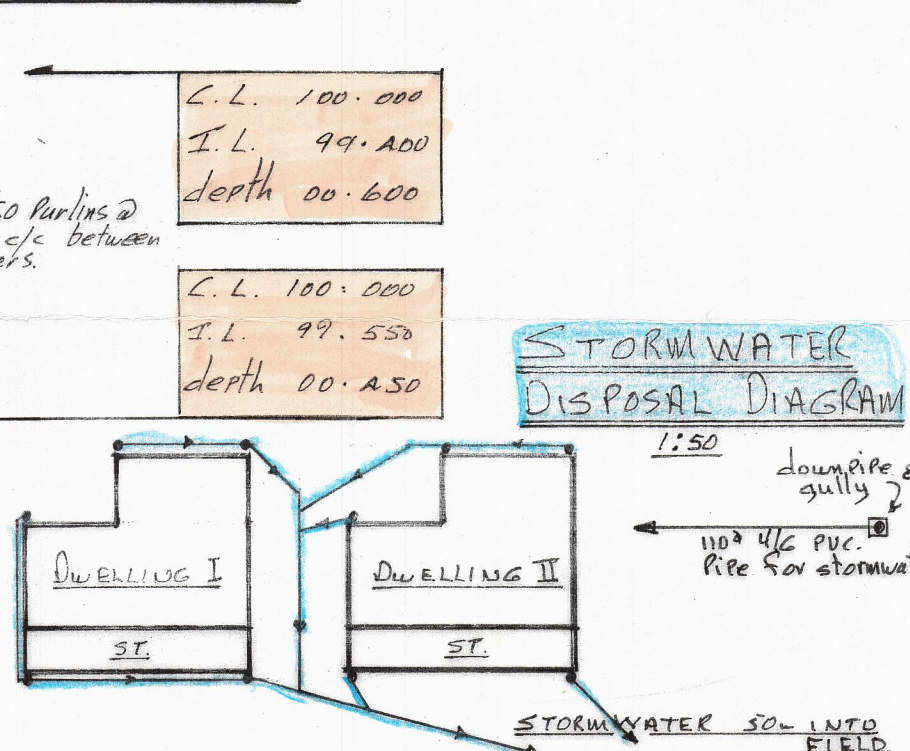 C.L. 100.000
I.L. 99.400
depth 00.600
50 Purlins @
c/c between
ers.
C.L. 100:000
I.L. 99.550
depth 00.450
STORMWATER
DISPOSAL DIAGRAM
1:50
downpipe &
gully
110ø U/G PVC.
Pipe for stormwa
DWELLING I
DWELLING II
ST.
ST.
STORMWATER 50m INTO
FIELD